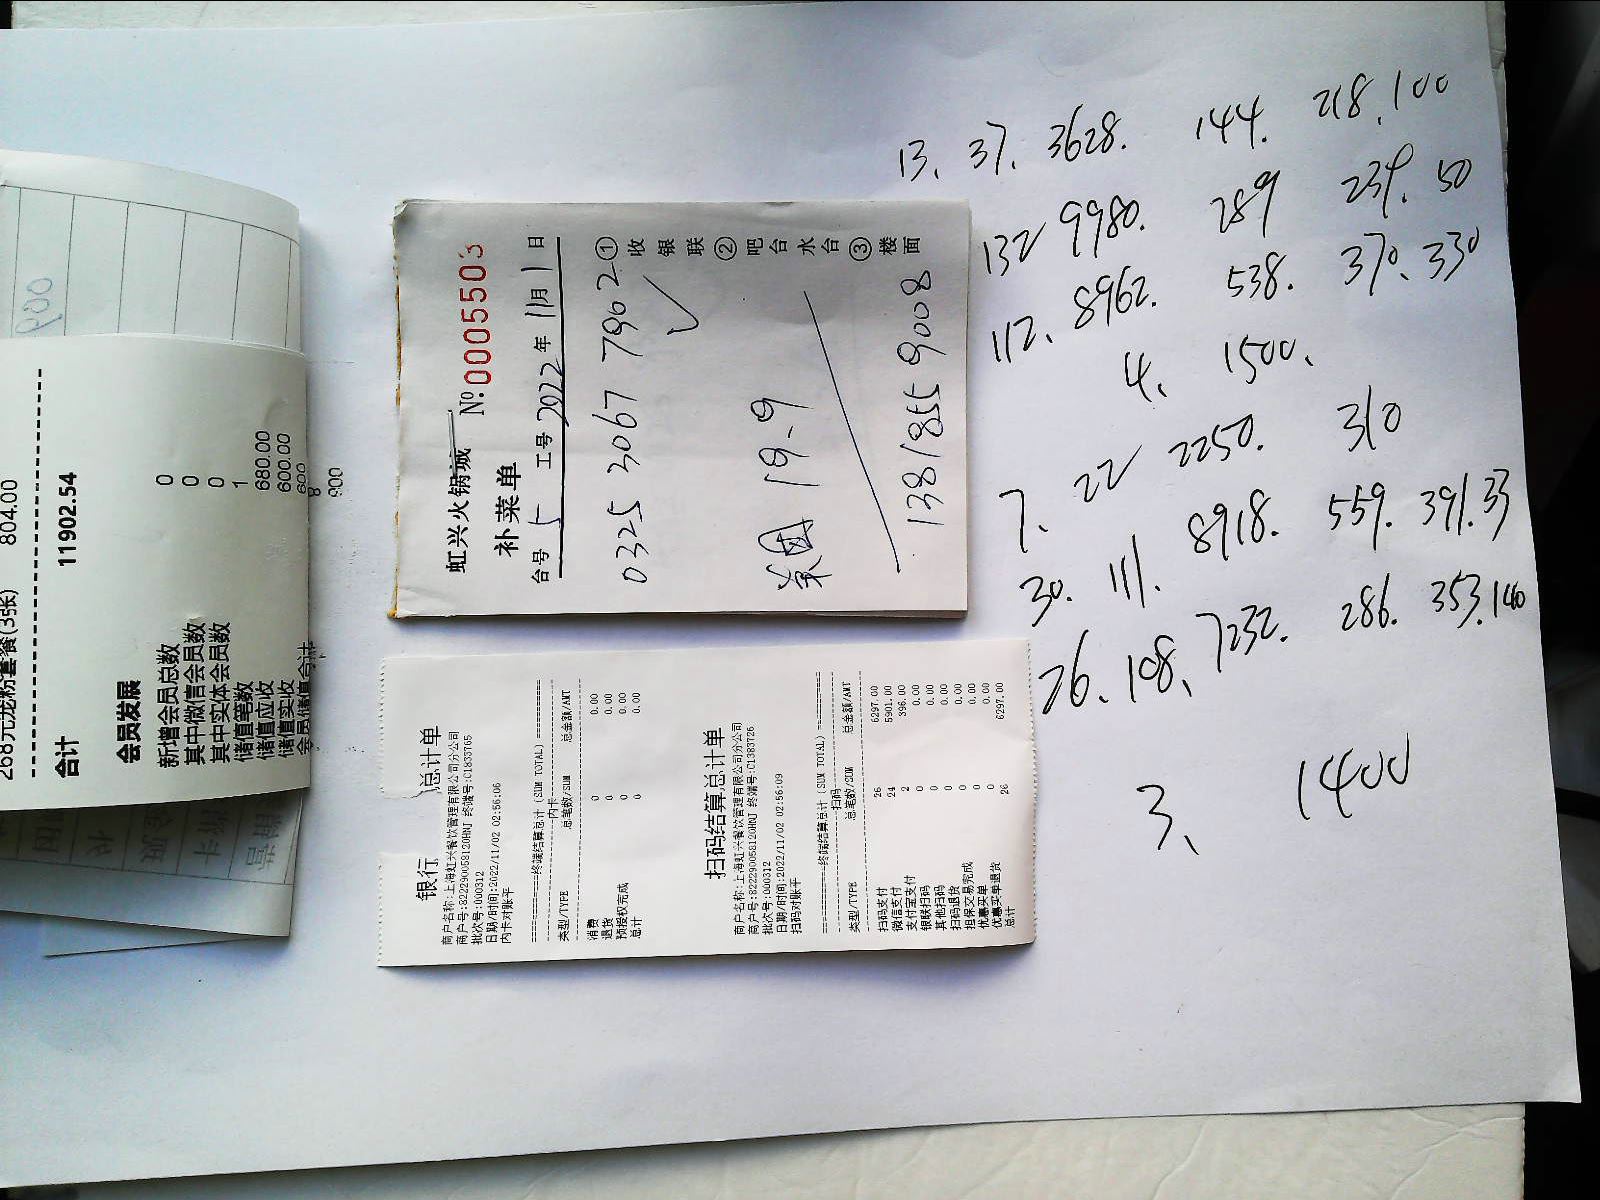 268元龙粉套餐(3张) 804.00
合计 11902.54
会员发展
新增会员总数 0
其中微信会员数 0
其中实体会员数 0
储值笔数 1
储值应收 680.00
储值实收 600.00
会员储值合计 600
虹兴火锅城 №0005503
补菜单
台号 5 工号 2022年 11月 1日
①收银联 ②吧台水台 ③楼面
0325 3067 7962
美团 19.9
13818559008
银行 总计单
商户名称:上海虹兴餐饮管理有限公司分公司
商户号:82229005812OHNJ 终端号:C1833765
批次号:000312
日期/时间:2022/11/02 02:56:06
内卡对账平
终端结算总计(SUM TOTAL)
内卡
类型/TYPE 总笔数/SUM 总金额/AMT
消费 0 0.00
退货 0 0.00
预授权完成 0 0.00
总计 0 0.00
扫码结算总计单
商户名称:上海虹兴餐饮管理有限公司分公司
商户号:82229005812OHNJ 终端号:C1383726
批次号:000312
日期/时间:2022/11/02 02:56:09
扫码对账平
终端结算总计(SUM TOTAL)
扫码
类型/TYPE 总笔数/SUM 总金额/AMT
扫码支付 26 6297.00
微信支付 24 5901.00
支付宝支付 2 396.00
银联扫码 0 0.00
其他扫码 0 0.00
扫码退货 0 0.00
担保交易完成 0 0.00
优惠买单 0 0.00
优惠买单退货 0 0.00
总计 26 6297.00
13. 37. 3628. 144. 218.100
132 9980. 289 234. 50
112. 8962. 538. 370. 330
4. 1500.
7. 22 2250. 310
30. 111. 8918. 559. 391.33
26. 108. 7232. 286. 353.140
3. 1400